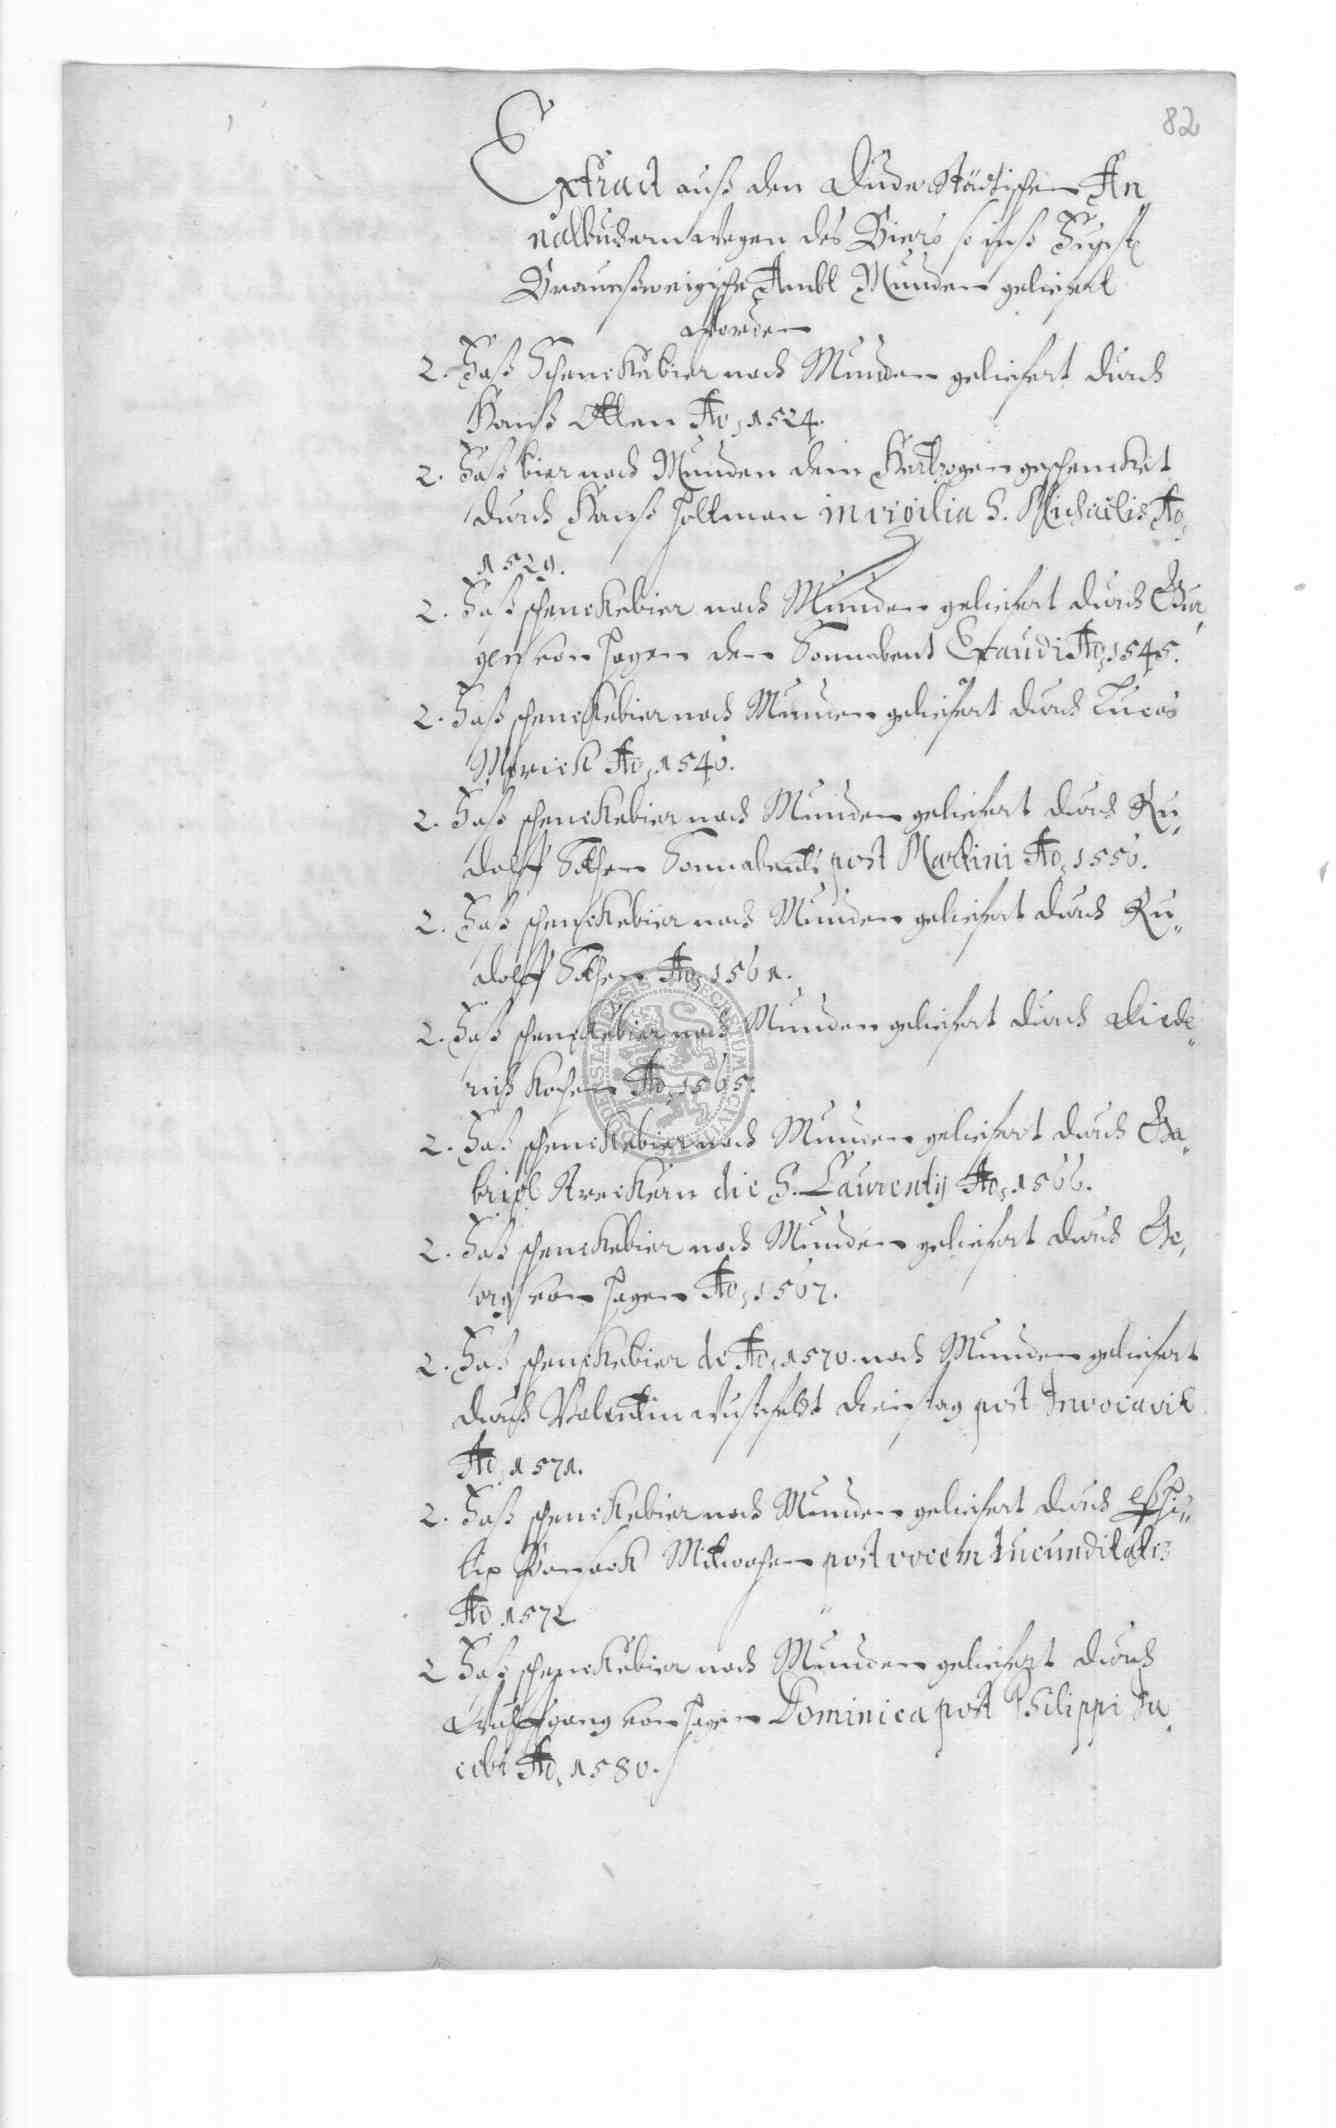 82
Extract auß den Duderstädtischen An,,
nalbuchern wegen des Biers so inß Furstl
Braunschweigische Ambt Munden geliefert
worden
2. Faß Schenckebier nach Munden geliefert durch
Hanß Otten Ao, 1524.
2. Faß bier nach Munden dem Hertzogen geschencket
durch Hanß Hollman in vigilia S. Michaelis Ao,
1529.
2. Faß schenckebier nach Munden geliefert durch Gur,,
gen von Hagen den Sonnabent Exaudi Ao, 1545.
2. Faß schenckebier nach Munden geliefert durch Lucas
Ao, 1540.
2. Faß schenckebier nach Munden geliefert durch Ru,,
dolff Sothen Sonnabents post Martini Ao, 1550.
2. Faß schenckebier nach Munden geliefert durch Ru,,
dolff Sothen Ao, 1561.
2. Faß schenckebier nach Munden geliefert durch Diede,,
rich Kochen Ao, 1565.
2. Faß schenckebier nach Munden geliefert durch Ga,,
briel Streckern die S. Laurentij Ao, 1566.
2. Faß schenckebier nach Munden geliefert durch Ge,,
org von Hagen Ao, 1567.
2. Faß schenckebier de Ao, 1570. nach Munden geliefert
durch Valentin Wustefeldt Dienstag post Invocavit
Ao, 1571.
2. Faß schenckebier nach Munden geliefert durch Phi,,
lip Mitwochen post vocem Iucunditatis
Ao 1572
2 Faß schenckebier nach Munden geliefert durch
Wulffgang von Hagen Dominica post Philippi Ja,,
cobi Ao, 1580.